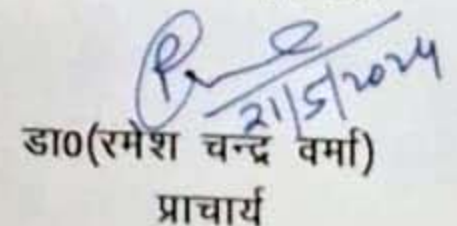 21/5/2024
डा0(रमेश चन्द्र वर्मा)
प्राचार्य